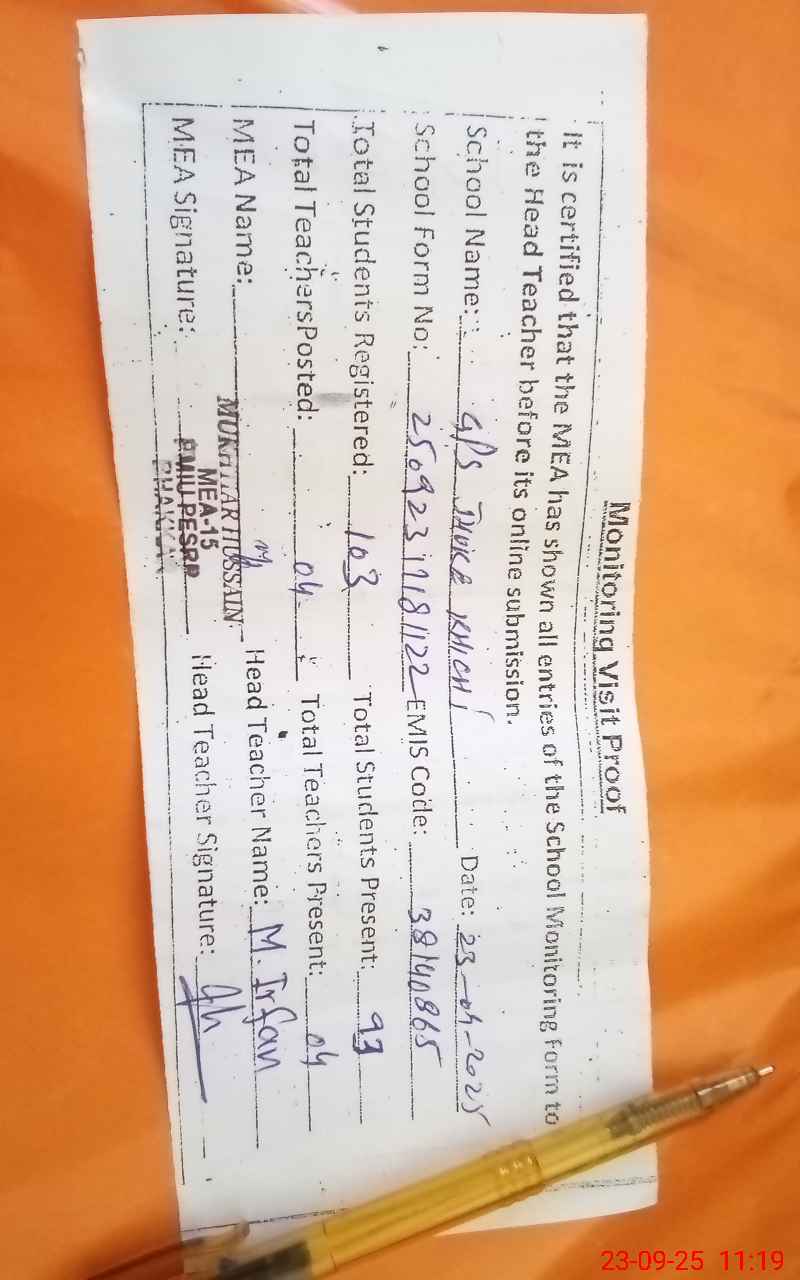 Monitoring Visit Proof
It is certified that the MEA has shown all entries of the School Monitoring form to
the Head Teacher before its online submission.
School Name: GPS KHICHI Date: 23-09-2025
School Form No: 25092317181122 EMIS Code: 38140865
Total Students Registered: 103 Total Students Present: 93
Total Teachers Posted: 04 Total Teachers Present: 04
MEA Name: MUKHTAR HUSSAIN Head Teacher Name: M. Irfan
MEA-15
MEA Signature: PMIU-PESRP Head Teacher Signature:
BHAKKAR
23-09-25 11:19